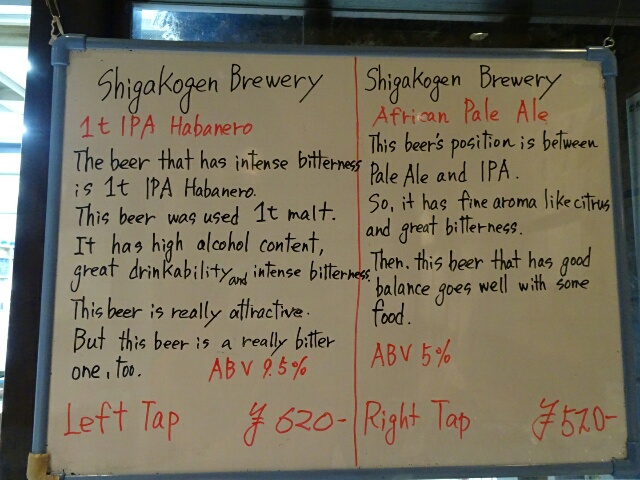 Shigakogen Brewery
1t IPA Habanero
The beer that has intense bitterness
is 1t IPA Habanero.
This beer was used 1t malt.
It has high alcohol content,
great drinkability and intense bitterness.
This beer is really attractive.
But this beer is a really bitter
one, too.
ABV 9.5%
Left Tap ¥620-
Shigakogen Brewery
African Pale Ale
This beer's position is between
Pale Ale and IPA.
So, it has fine aroma like citrus
and great bitterness.
Then. this beer that has good
balance goes well with some
food.
ABV 5%
Right Tap ¥520-